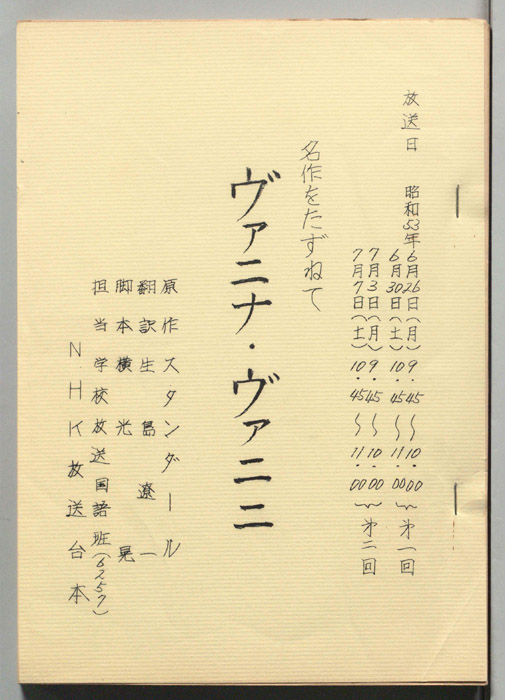 放送日　昭和53年6月26日（月）9.45〜10.00
6月30日（土）10.45〜11.00　第一回
7月3日（月）9.45〜10.00
7月7日（土）10.45〜11.00　第二回
名作をたずねて
ヴァニナ・ヴァニニ
原作スタンダール
翻訳生島遼一
脚本横光晃
担当学校放送国語班（6257）
NHK放送台本